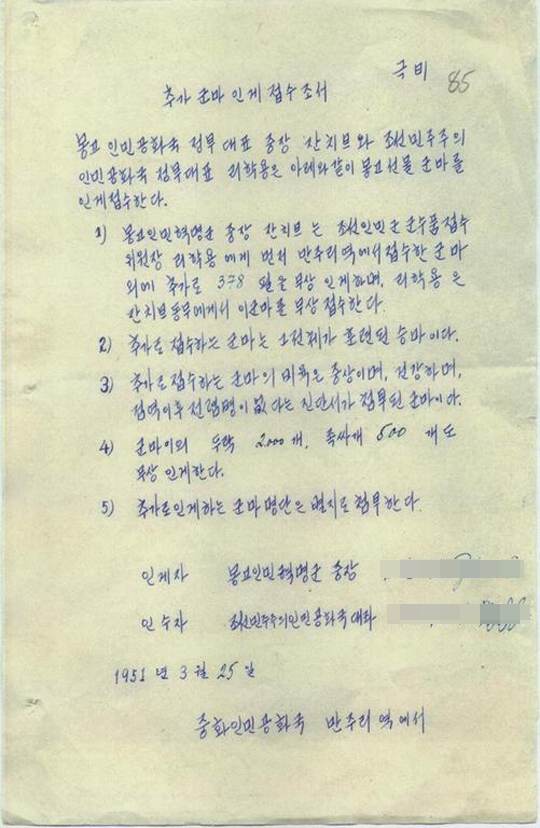 극비
85
추가 군마 인계 접수 조서
몽고 인민공화국 정부 대표 중장 잔치브와 조선민주주의
인민공화국 정부대표 리학용은 아래와같이 몽고선물 군마를
인계접수한다.
1) 몽고인민혁명군 중장 잔치브는 조선인민군 군수품접수
위원장 리학용에게 먼저 만주리역에서접수한 군마
외에 추가로 378 필을 무상 인계하며, 리학용은
잔치브동무에게서 이군마를 무상 접수한다.
2) 추가로 접수하는 군마는 전체가 훈련된 승마이다.
3) 추가로 접수하는 군마의 비육은 중상이며, 건강하며,
검역이후 전렴병이 없다는 진단서가 첨부된 군마이다.
4) 군마이외 두락 2000개, 족싸개 500 개도
무상 인계한다.
5) 추가로인계하는 군마명단은 별지로 첨부한다.
인계자 몽고인민혁명군 중장
인수자 조선민주주의인민공화국 대좌
1951 년 3 월 25 일
중화인민공화국 만주리 역에서